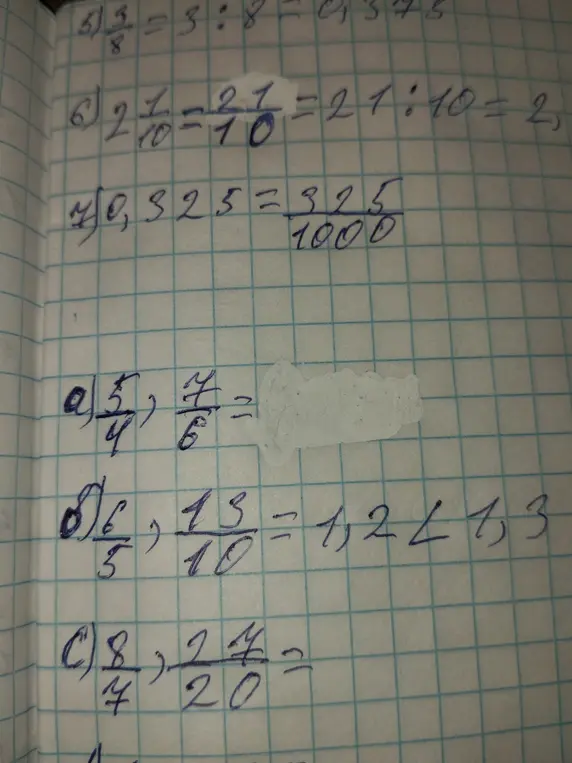 5) 3/8 = 3 : 8 = 0,375
6) 2 1/10 = 21/10 = 21 : 10 = 2,
7) 0,325 = 325/1000
а) 5/4 ; 7/6 =
б) 6/5 ; 13/10 = 1,2 < 1,3
с) 8/7 ; 27/20 =